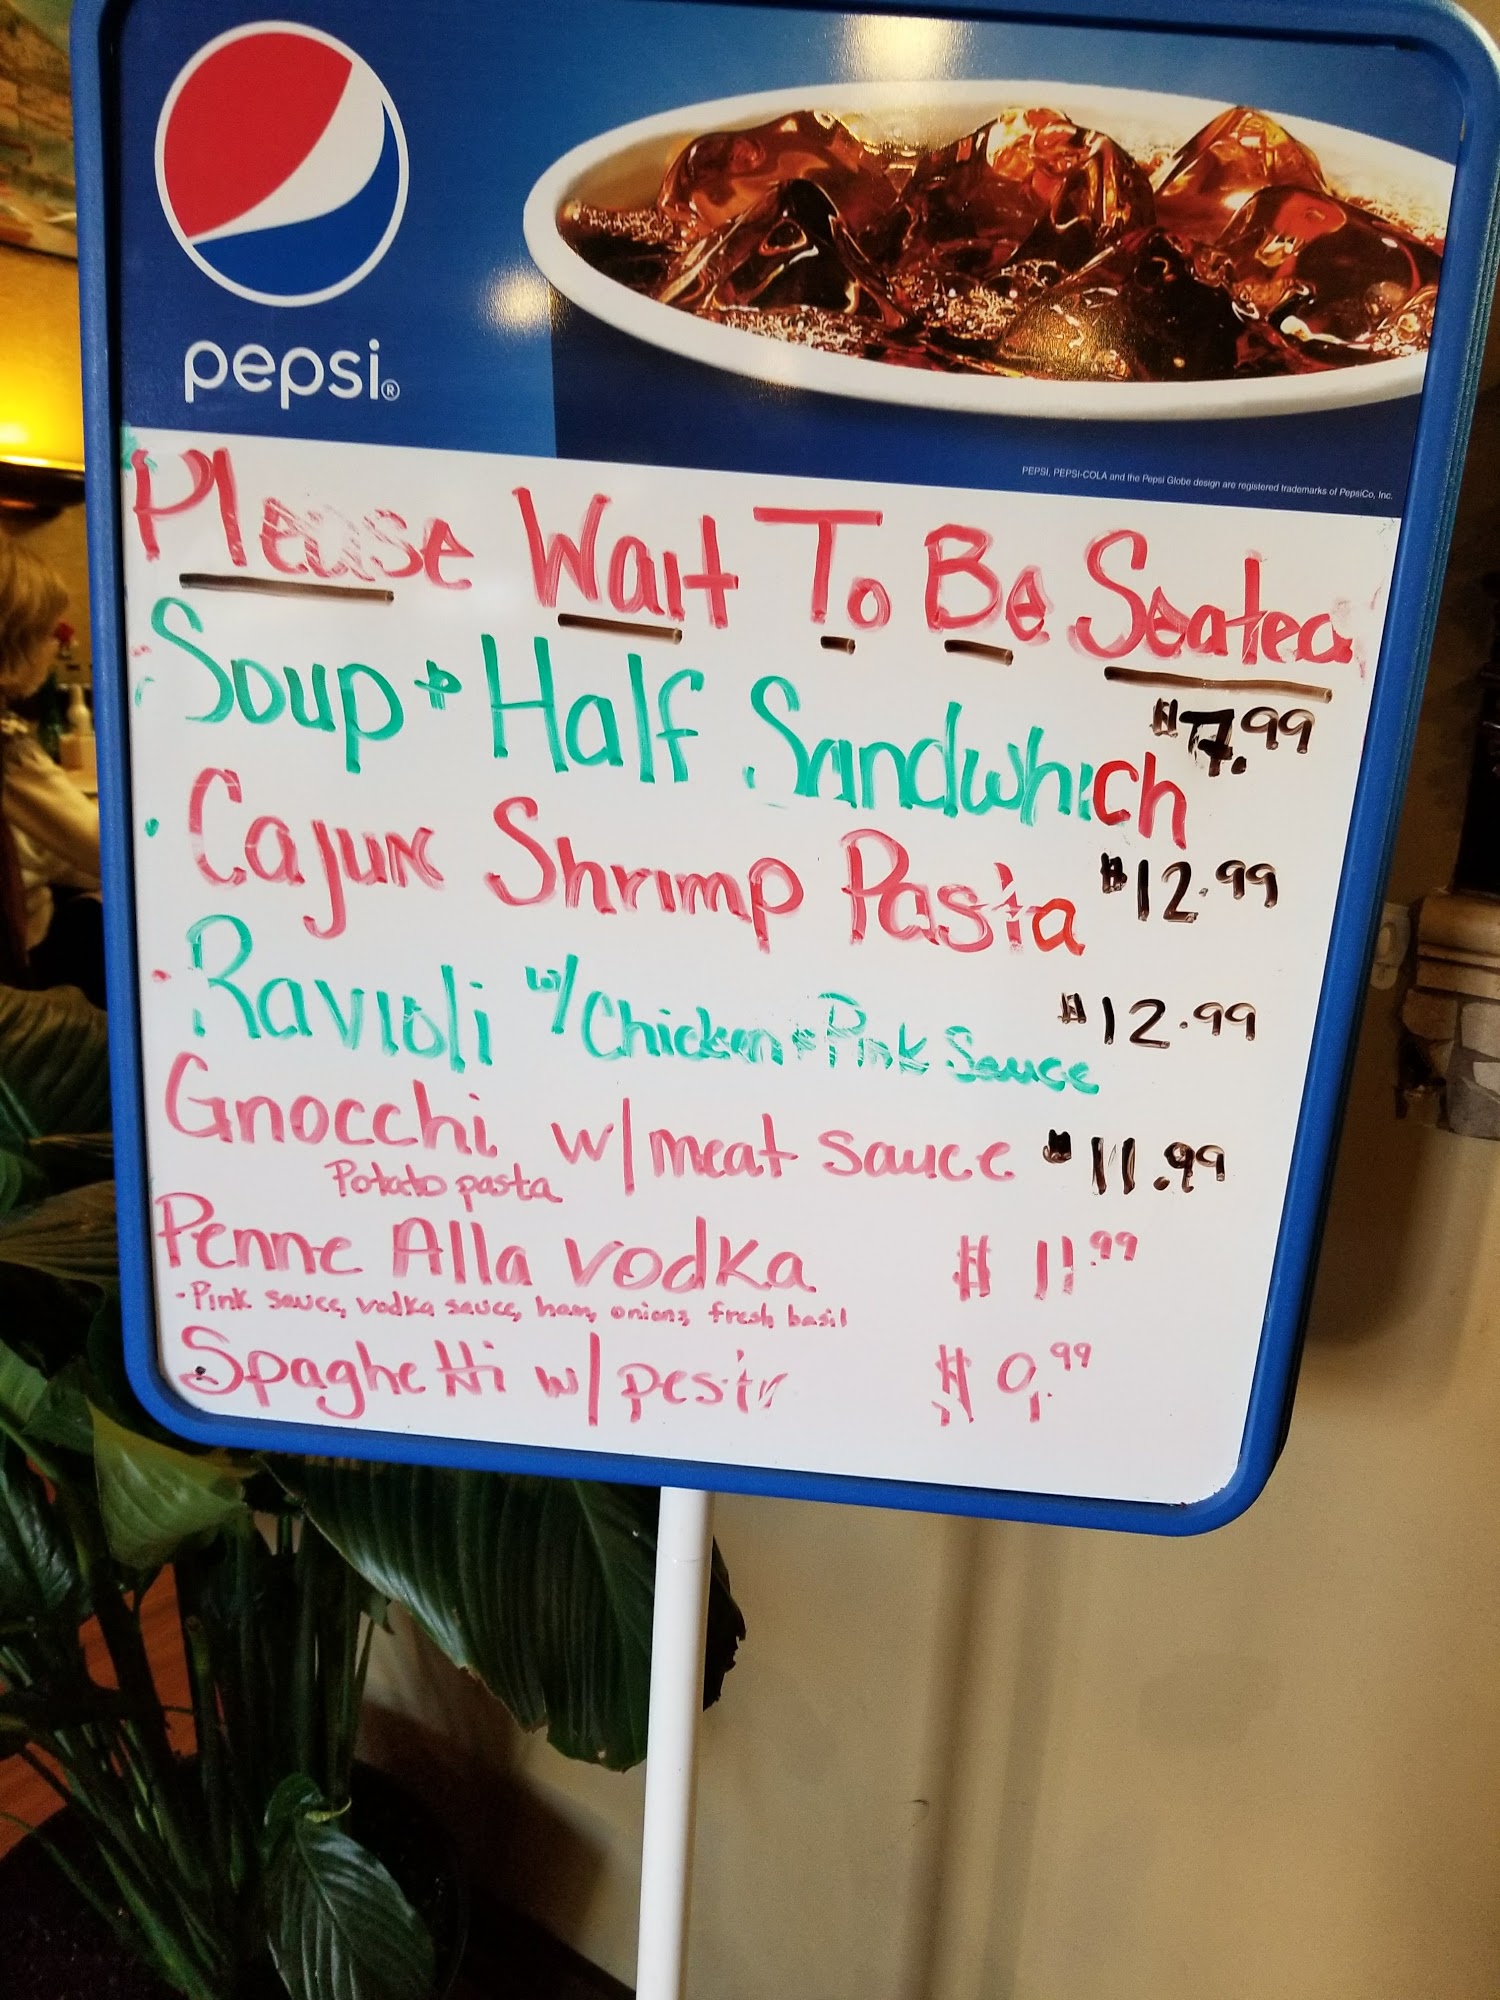 pepsi®
PEPSI, PEPSI-COLA and the Pepsi Globe design are registered trademarks of PepsiCo, Inc.
Please Wait To Be Seated
Soup + Half Sandwhich $7.99
· Cajun Shrimp Pasta $12.99
· Ravioli w/ Chicken + Pink Sauce $12.99
Gnocchi w/ meat sauce $11.99
Potato pasta
Penne Alla vodka $11.99
- Pink sauce, vodka sauce, ham, onions, fresh basil
Spaghetti w/ pesto $9.99